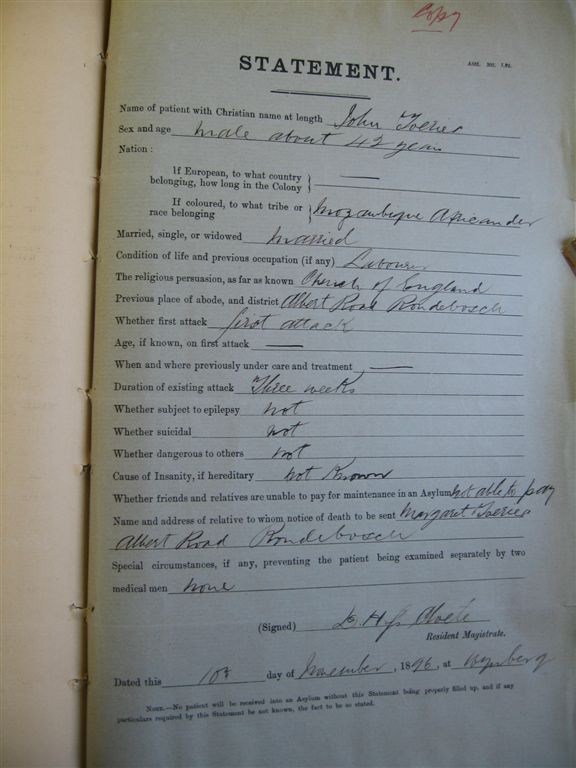 Copy
STATEMENT.
Name of patient with Christian name at length John
Sex and age male about 42 years
Nation :
If European, to what country
belonging, how long in the Colony } —
If coloured, to what tribe or
race belonging } Mozambique Africander
Married, single, or widowed married
Condition of life and previous occupation (if any) Labourer
The religious persuasion, as far as known Church of England
Previous place of abode, and district Albert Road Rondebosch
Whether first attack first attack
Age, if known, on first attack —
When and where previously under care and treatment —
Duration of existing attack Three weeks
Whether subject to epilepsy not
Whether suicidal not
Whether dangerous to others not
Cause of Insanity, if hereditary not known
Whether friends and relatives are unable to pay for maintenance in an Asylum not able to pay
Name and address of relative to whom notice of death to be sent Margaret
Albert Road Rondebosch
Special circumstances, if any, preventing the patient being examined separately by two
medical men none
(Signed)
Resident Magistrate.
Dated this 10th day of November, 1896, at Wynberg
NOTE.—No patient will be received into an Asylum without this Statement being properly filled up, and if any
particulars required by this Statement be not known, the fact to be so stated.